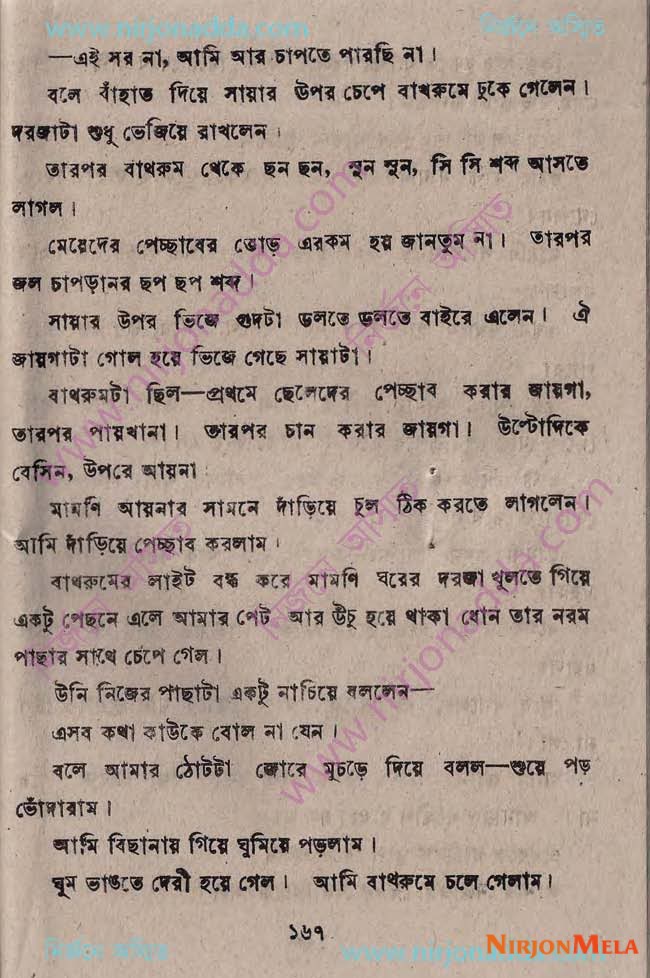 www.nirjonadda.com নির্জনে অসিতে
—এই সর না, আমি আর চাপতে পারছি না।
বলে বাঁহাত দিয়ে সায়ার উপর চেপে বাথরুমে ঢুকে গেলেন।
দরজাটা শুধু ভেজিয়ে রাখলেন।
তারপর বাথরুম থেকে ছন ছন, সুন সুন, সি সি শব্দ আসতে
লাগল।
মেয়েদের পেচ্ছাবের তোড় এরকম হয় জানতুম না। তারপর
জল চাপড়ানর ছপ ছপ শব্দ।
সায়ার উপর ভিজে গুদটা ডলতে ডলতে বাইরে এলেন। ঐ
জায়গাটা গোল হয়ে ভিজে গেছে সায়াটা।
বাথরুমটা ছিল—প্রথমে ছেলেদের পেচ্ছাব করার জায়গা,
তারপর পায়খানা। তারপর চান করার জায়গা। উল্টোদিকে
বেসিন, উপরে আয়না
মামণি আয়নার সামনে দাঁড়িয়ে চুল ঠিক করতে লাগলেন।
আমি দাঁড়িয়ে পেচ্ছাব করলাম।
বাথরুমের লাইট বন্ধ করে মামণি ঘরের দরজা খুলতে গিয়ে
একটু পেছনে এলে আমার পেট আর উঁচু হয়ে থাকা ধোন তার নরম
পাছার সাথে চেপে গেল।
উনি নিজের পাছাটা একটু নাচিয়ে বললেন—
এসব কথা কাউকে বোল না যেন।
বলে আমার ঠোটটা জোরে মুচড়ে দিয়ে বলল—শুয়ে পড়
ভোঁদারাম।
আমি বিছানায় গিয়ে ঘুমিয়ে পড়লাম।
ঘুম ভাঙতে দেরী হয়ে গেল। আমি বাথরুমে চলে গেলাম।
১৬৭
www.nirjonadda.com
NIRJONMELA